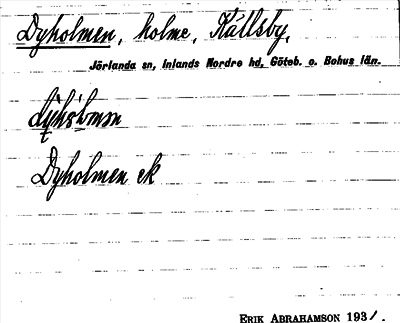 Dyholmen, holme, Källsby.
Jörlanda sn, Inlands Nordre hd, Göteb. o. Bohus län.
Dyholmen ek
ERIK ABRAHAMSON 1931.